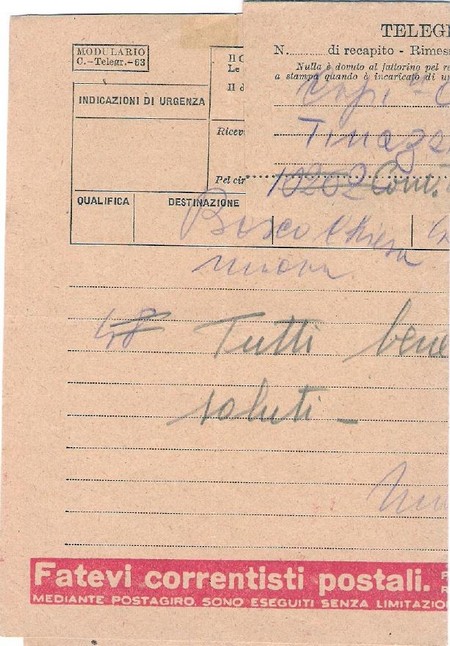 TELEG
N. di recapito - Rimes
Nulla è dovuto al fattorino pel re
a stampa quando è incaricato di u
MODULARIO
C.-Telegr.-63
Il
Le
Il d
INDICAZIONI DI URGENZA
Ricev
Tinazz
Pel cir
10202 Com.
QUALIFICA DESTINAZIONE
Bosco Chiesa
nuova
48 Tutti bene
saluti -
Fatevi correntisti postali.
MEDIANTE POSTAGIRO, SONO ESEGUITI SENZA LIMITAZIO